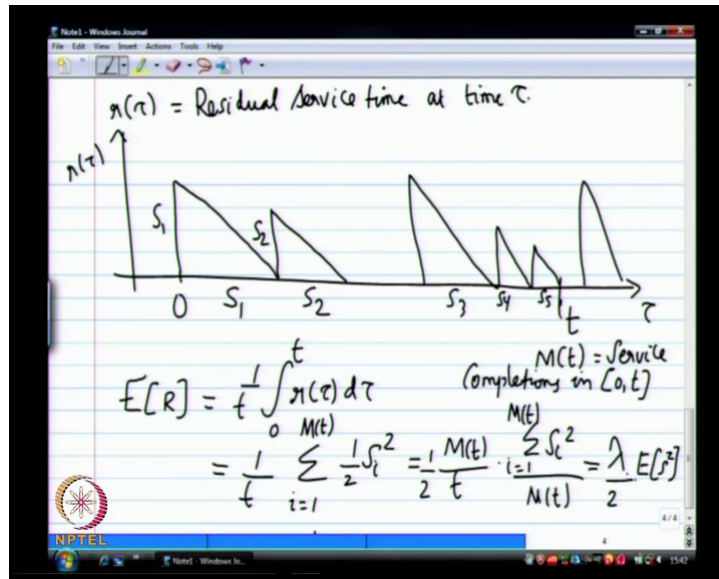 Note1 - Windows Journal
File Edit View Insert Actions Tools Help
r(τ) = Residual Service time at time τ.
r(τ)
S₁ S₂
0 S₁ S₂ S₃ S₄ S₅ t τ
M(t) = Service
Completions in [0,t]
E[R] = 1/t ∫₀ᵗ r(τ) dτ
= 1/t ∑_{i=1}^{M(t)} 1/2 Sᵢ² = 1/2 M(t)/t · ∑_{i=1}^{M(t)} Sᵢ² / M(t) = λ/2 E[s²]
NPTEL
4/4
4
Note1 - Windows Jo...
15:42